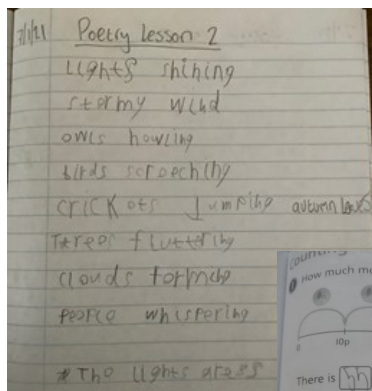 7/1/21 Poetry Lesson 2
Lights shining
stormy wind
owls howling
birds screeching
crickets Jumping autumn
Trees fluttering
clouds forming
people whispering
* The lights
counting
How much
0 10p
There is